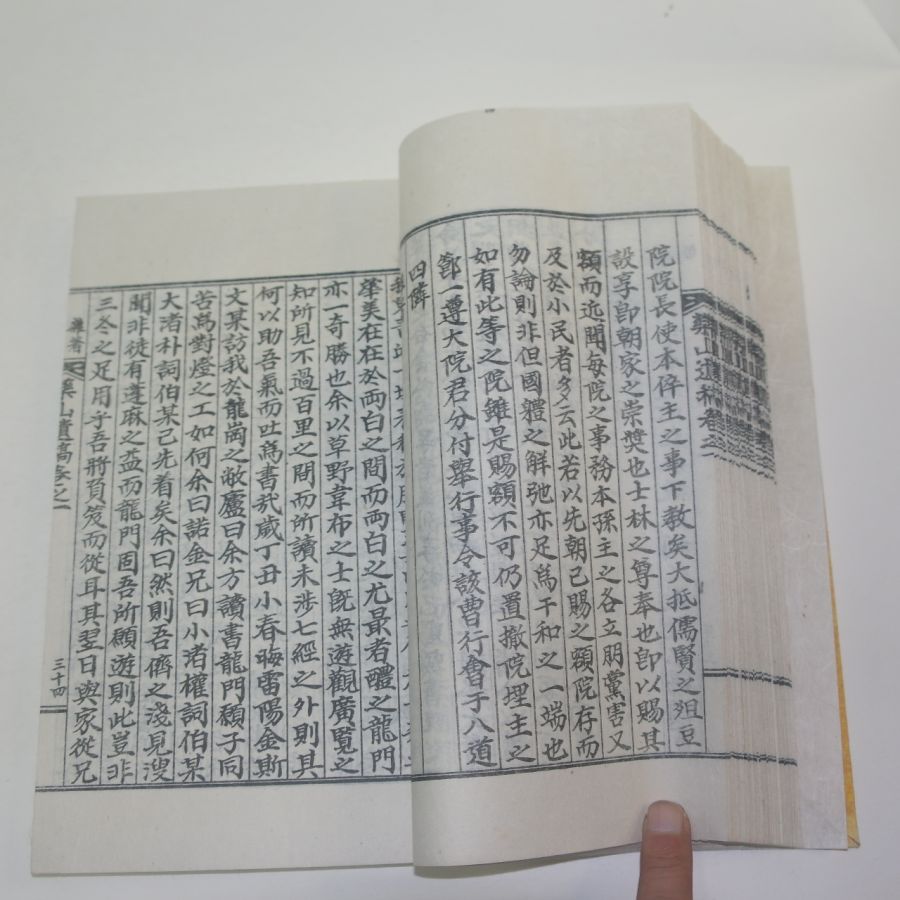 院院長使本倅主之事下教矣大抵儒賢之俎豆
設享卽朝家之崇奬也士林之尊奉也卽以賜其
額而近聞每院之事務本孫主之各立朋黨害又
及於小民者多云此若以先朝已賜之額院存而
勿論則非但國體之解弛亦足爲干和之一端也
如有此等之院雖是賜額不可仍置撤院埋主之
節一尊大院君分付舉行事令該曹行會于八道
四隣
華美在在於兩白之間而兩白之尤最者醴之龍門
亦一奇勝也余以草野韋布之士旣無遊觀廣覧之
知所見不過百里之間而所讀未涉七經之外則其
何以助吾氣而吐爲書㢤歲丁丑小春晦雷陽金斯
文某訪我於龍崗之敝廬曰余方讀書龍門願子同
苦爲對燈之工如何余曰諾金兄曰小渚權詞伯某
大渚朴詞伯某已先着矣余曰然則吾儕之淺見溲
聞非徒有蓬麻之益而龍門固吾所願遊則此豈非
三冬之足用乎吾將負笈而從耳其翌日與家從兄
雜著
遺稿卷之
三十四
山遺稿卷之